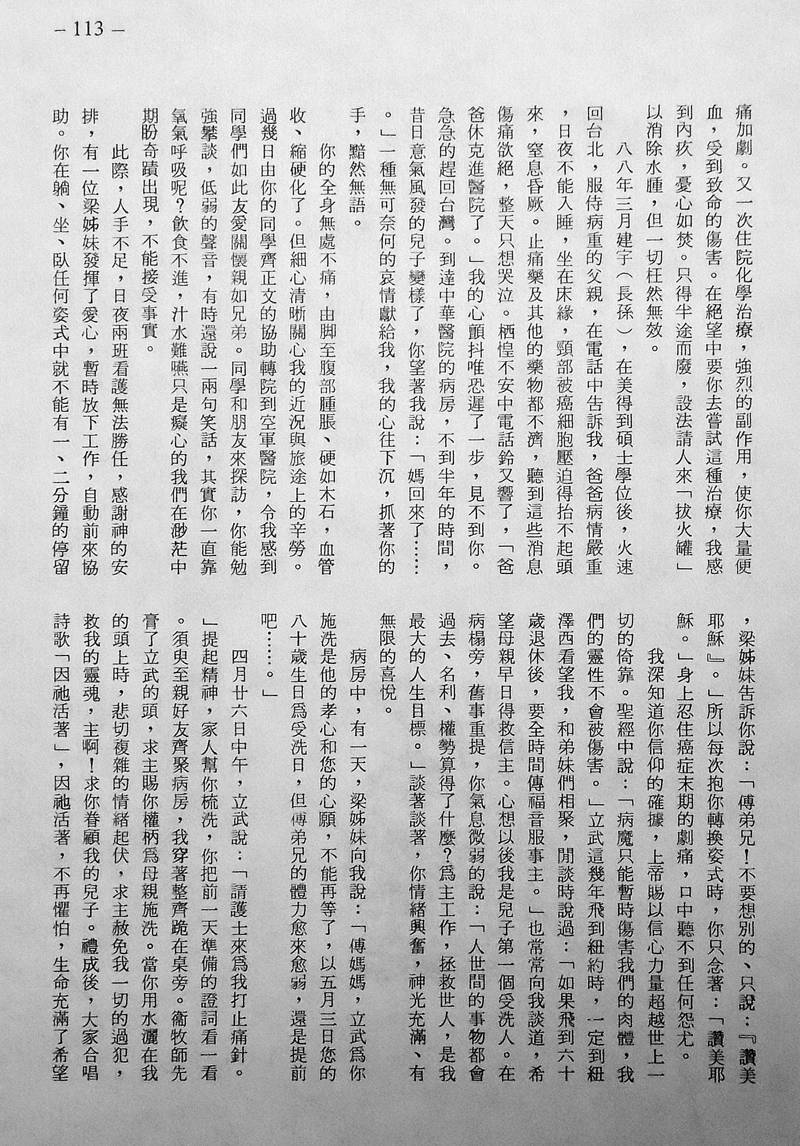 －113－
痛加劇。又一次住院化學治療，強烈的副作用，使你大量便
血，受到致命的傷害。在絕望中要你去嘗試這種治療，我感
到內疚，憂心如焚。只得半途而廢，設法請人來「拔火罐」
以消除水腫，但一切枉然無效。
八八年三月建宇（長孫），在美得到碩士學位後，火速
回台北，服侍病重的父親，在電話中告訴我，爸爸病情嚴重
，日夜不能入睡，坐在床緣，頸部被癌細胞壓迫得抬不起頭
來，窒息昏厥。止痛藥及其他的藥物都不濟，聽到這些消息
傷痛欲絕，整天只想哭泣。栖惶不安中電話鈴又響了，「爸
爸休克進醫院了。」我的心顫抖唯恐遲了一步，見不到你。
急急的趕回台灣。到達中華醫院的病房，不到半年的時間，
昔日意氣風發的兒子變樣了，你望著我說：「媽回來了……
。」一種無可奈何的哀情獻給我，我的心往下沉，抓著你的
手，黯然無語。
你的全身無處不痛，由脚至腹部腫脹、硬如木石，血管
收、縮硬化了。但細心清晰關心我的近況與旅途上的辛勞。
過幾日由你的同學齊正文的協助轉院到空軍醫院，令我感到
同學們如此友愛關懷親如兄弟。同學和朋友來探訪，你能勉
強攀談，低弱的聲音，有時還說一兩句笑話，其實你一直靠
氧氣呼吸呢？飲食不進，汁水難嚥只是癡心的我們在渺茫中
期盼奇蹟出現，不能接受事實。
此際，人手不足，日夜兩班看護無法勝任，感謝神的安
排，有一位梁姊妹發揮了愛心，暫時放下工作，自動前來協
助。你在躺、坐、臥任何姿式中就不能有一、二分鐘的停留
，梁姊妹告訴你說：「傅弟兄！不要想別的、只說：『讚美
耶穌』。」所以每次抱你轉換姿式時，你只念著：「讚美耶
穌。」身上忍住癌症末期的劇痛，口中聽不到任何怨尤。
我深知道你信仰的確據，上帝賜以信心力量超越世上一
切的倚靠。聖經中說：「病魔只能暫時傷害我們的肉體，我
們的靈性不會被傷害。」立武這幾年飛到紐約時，一定到紐
澤西看望我，和弟妹們相聚，閒談時說過：「如果飛到六十
歲退休後，要全時間傳福音服事主。」也常常向我談道，希
望母親早日得救信主。心想以後我是兒子第一個受洗人。在
病榻旁，舊事重提，你氣息微弱的說：「人世間的事物都會
過去、名利、權勢算得了什麼？爲主工作，拯救世人，是我
最大的人生目標。」談著談著，你情緒興奮，神光充滿、有
無限的喜悅。
病房中，有一天，梁姊妹向我說：「傅媽媽，立武爲你
施洗是他的孝心和您的心願，不能再等了，以五月三日您的
八十歲生日爲受洗日，但傅弟兄的體力愈來愈弱，還是提前
吧……。」
四月廿六日中午，立武說：「請護士來爲我打止痛針。
」提起精神，家人幫你梳洗，你把前一天準備的證詞看一看
。須臾至親好友齊聚病房，我穿著整齊跪在桌旁。衞牧師先
膏了立武的頭，求主賜你權柄爲母親施洗。當你用水灑在我
的頭上時，悲切複雜的情緒起伏，求主赦免我一切的過犯，
救我的靈魂，主啊！求你眷顧我的兒子。禮成後，大家合唱
詩歌「因祂活著」，因祂活著，不再懼怕，生命充滿了希望